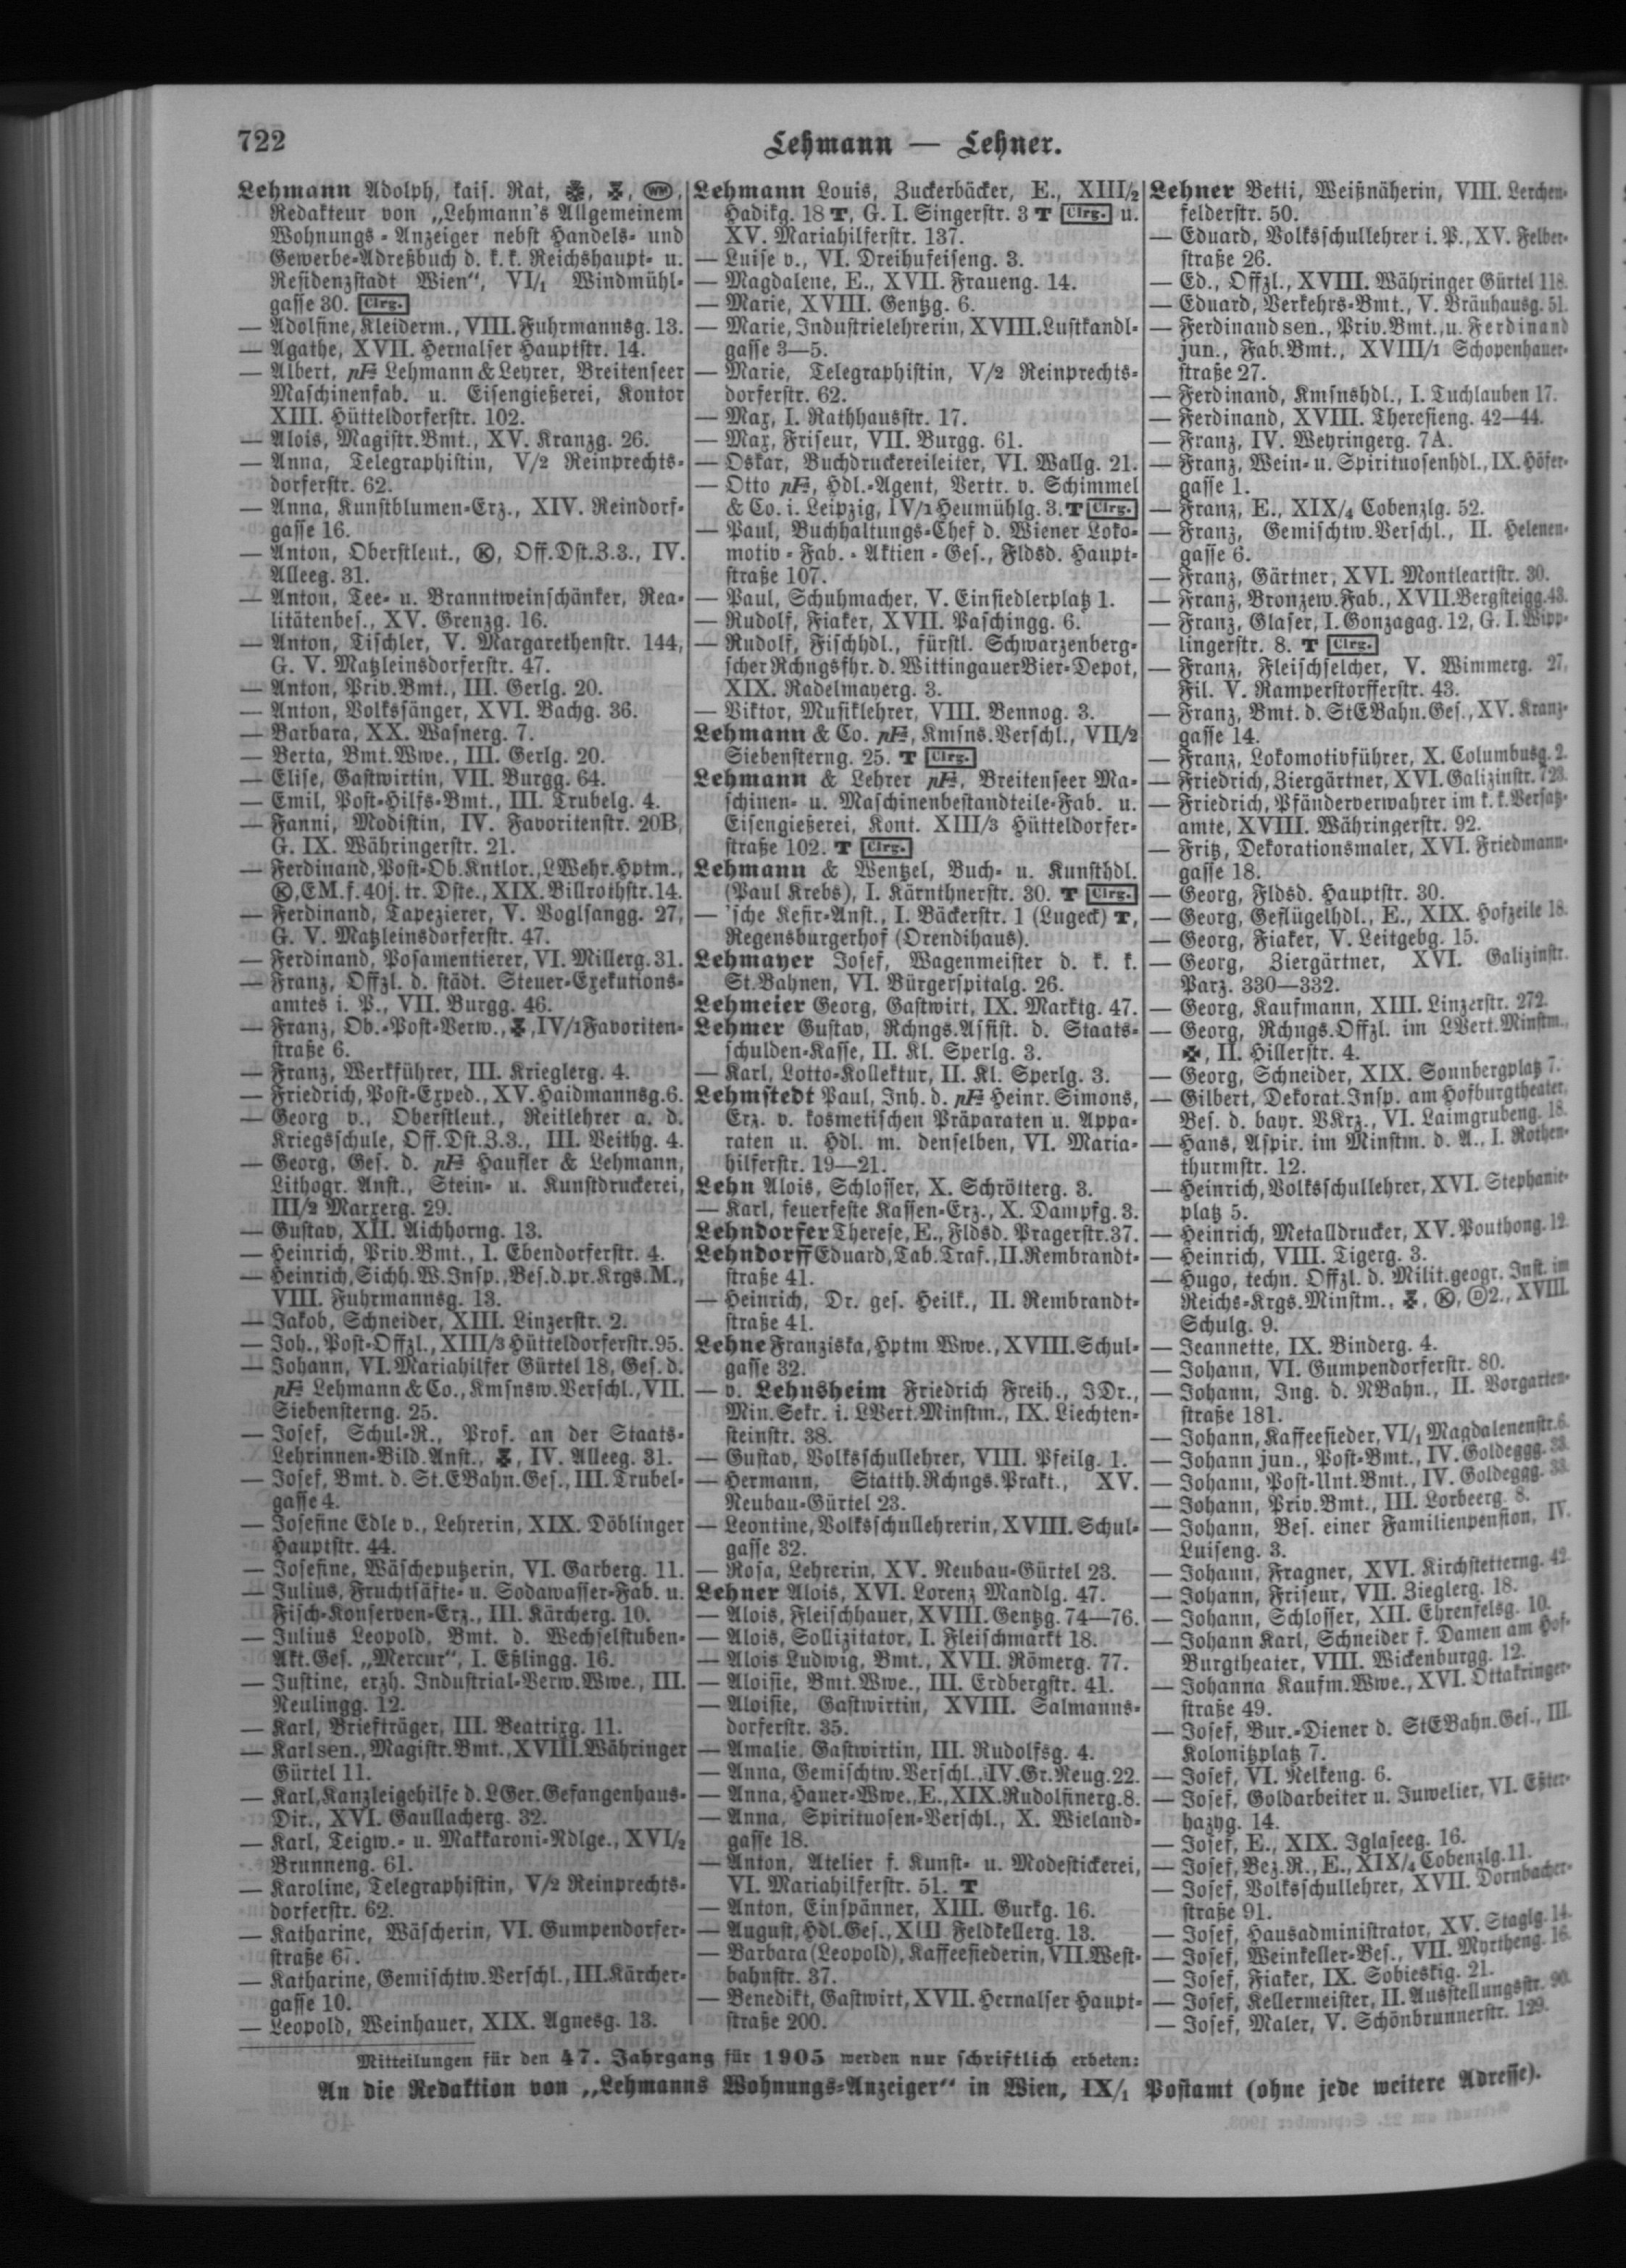 722
Lehmann — Lehner.
Lehmann Adolph, kais. Rat,
Redakteur von „Lehmann's Allgemeinem
Wohnungs-Anzeiger nebst Handels- und
Gewerbe-Adreßbuch d. k. k. Reichshaupt- u.
Residenzstadt Wien“, VI/1 Windmühl-
gasse 30. Clrg.
— Adolfine, Kleiderm., VIII. Fuhrmannsg. 13.
— Agathe, XVII. Hernalser Hauptstr. 14.
— Albert, pF. Lehmann & Leyrer, Breitenseer
Maschinenfab. u. Eisengießerei, Kontor
XIII. Hütteldorferstr. 102.
— Alois, Magistr.Bmt., XV. Kranzg. 26.
— Anna, Telegraphistin, V/2 Reinprechts-
dorferstr. 62.
— Anna, Kunstblumen-Erz., XIV. Reindorf-
gasse 16.
— Anton, Oberstleut., Ⓚ, Off.Dst.Z.3., IV.
Alleeg. 31.
— Anton, Tee- u. Branntweinschänker, Rea-
litätenbes., XV. Grenzg. 16.
— Anton, Tischler, V. Margarethenstr. 144,
G. V. Matzleinsdorferstr. 47.
— Anton, Priv.Bmt., III. Gerlg. 20.
— Anton, Volkssänger, XVI. Bachg. 36.
— Barbara, XX. Wasnerg. 7.
— Berta, Bmt.Wwe., III. Gerlg. 20.
— Elise, Gastwirtin, VII. Burgg. 64.
— Emil, Post-Hilfs-Bmt., III. Trubelg. 4.
— Fanni, Modistin, IV. Favoritenstr. 20B,
G. IX. Währingerstr. 21.
— Ferdinand, Post-Ob.Kntlor., LWehr.Hptm.,
Ⓚ, EM.f.40j.tr.Dste., XIX. Billrothstr. 14.
— Ferdinand, Tapezierer, V. Voglsangg. 27,
G. V. Matzleinsdorferstr. 47.
— Ferdinand, Posamentierer, VI. Millerg. 31.
— Franz, Offzl. d. städt. Steuer-Exekutions-
amtes i. P., VII. Burgg. 46.
— Franz, Ob.-Post-Verw., IV/1 Favoriten-
straße 6.
— Franz, Werkführer, III. Krieglerg. 4.
— Friedrich, Post-Exped., XV. Haidmannsg. 6.
— Georg v., Oberstleut., Reitlehrer a. d.
Kriegsschule, Off.Dst.Z.3., III. Veithg. 4.
— Georg, Ges. d. pF. Haufler & Lehmann,
Lithogr. Anst., Stein- u. Kunstdruckerei,
III/2 Marxerg. 29.
— Gustav, XII. Aichhorng. 13.
— Heinrich, Priv.Bmt., I. Ebendorferstr. 4.
— Heinrich, Sichh.W.Insp., Bes.d.pr.Krgs.M.,
VIII. Fuhrmannsg. 13.
— Jakob, Schneider, XIII. Linzerstr. 2.
— Joh., Post-Offzl., XIII/3 Hütteldorferstr. 95.
— Johann, VI. Mariahilfer Gürtel 18, Ges. d.
pF. Lehmann & Co., Kmsnsw.Verschl., VII.
Siebensterng. 25.
— Josef, Schul-R., Prof. an der Staats-
Lehrinnen-Bild.Anst., IV. Alleeg. 31.
— Josef, Bmt. d. St.EBahn.Ges., III. Trubel-
gasse 4.
— Josefine Edle v., Lehrerin, XIX. Döblinger
Hauptstr. 44.
— Josefine, Wäscheputzerin, VI. Garberg. 11.
— Julius, Fruchtsäfte- u. Sodawasser-Fab. u.
Fisch-Konserven-Erz., III. Kärcherg. 10.
— Julius Leopold, Bmt. d. Wechselstuben-
Akt.Ges. „Mercur“, I. Eßlingg. 16.
— Justine, erzh. Industrial-Verw.Wwe., III.
Neulingg. 12.
— Karl, Briefträger, III. Beatrixg. 11.
— Karl sen., Magistr.Bmt., XVIII. Währinger
Gürtel 11.
— Karl, Kanzleigehilfe d. LGer.Gefangenhaus-
Dir., XVI. Gaullacherg. 32.
— Karl, Teigw.- u. Makkaroni-Ndlge., XVI/2
Brunneng. 61.
— Karoline, Telegraphistin, V/2 Reinprechts-
dorferstr. 62.
— Katharine, Wäscherin, VI. Gumpendorfer-
straße 67.
— Katharine, Gemischtw.Verschl., III. Kärcher-
gasse 10.
— Leopold, Weinhauer, XIX. Agnesg. 13.
Lehmann Louis, Zuckerbäcker, E., XIII/2
Hadikg. 18 T, G. I. Singerstr. 3 T Clrg. u.
XV. Mariahilferstr. 137.
— Luise v., VI. Dreihufeiseng. 3.
— Magdalene, E., XVII. Fraueng. 14.
— Marie, XVIII. Gentzg. 6.
— Marie, Industrielehrerin, XVIII. Lustkandl-
gasse 3—5.
— Marie, Telegraphistin, V/2 Reinprechts-
dorferstr. 62.
— Max, I. Rathhausstr. 17.
— Max, Friseur, VII. Burgg. 61.
— Oskar, Buchdruckereileiter, VI. Wallg. 21.
— Otto pF., Hdl.-Agent, Vertr. v. Schimmel
& Co. i. Leipzig, IV/1 Heumühlg. 3. T Clrg.
— Paul, Buchhaltungs-Chef d. Wiener Loko-
motiv-Fab.-Aktien-Ges., Fldsd. Haupt-
straße 107.
— Paul, Schuhmacher, V. Einsiedlerplatz 1.
— Rudolf, Fiaker, XVII. Paschingg. 6.
— Rudolf, Fischhdl., fürstl. Schwarzenberg-
scher Rchngsfhr. d. Wittingauer Bier-Depot,
XIX. Radelmayerg. 3.
— Viktor, Musiklehrer, VIII. Bennog. 3.
Lehmann & Co. pF., Kmsns.Verschl., VII/2
Siebensterng. 25. T Clrg.
Lehmann & Lehrer pF., Breitenseer Ma-
schinen- u. Maschinenbestandteile-Fab. u.
Eisengießerei, Kont. XIII/3 Hütteldorfer-
straße 102. T Clrg.
Lehmann & Wentzel, Buch- u. Kunsthdl.
(Paul Krebs), I. Kärnthnerstr. 30. T Clrg.
— 'sche Kefir-Anst., I. Bäckerstr. 1 (Lugeck) T,
Regensburgerhof (Orendihaus).
Lehmayer Josef, Wagenmeister d. k. k.
St.Bahnen, VI. Bürgerspitalg. 26.
Lehmeier Georg, Gastwirt, IX. Marktg. 47.
Lehmer Gustav, Rchngs.Assist. d. Staats-
schulden-Kasse, II. Kl. Sperlg. 3.
— Karl, Lotto-Kollektur, II. Kl. Sperlg. 3.
Lehmstedt Paul, Inh. d. pF. Heinr. Simons,
Erz. v. kosmetischen Präparaten u. Appa-
raten u. Hdl. m. denselben, VI. Maria-
hilferstr. 19—21.
Lehn Alois, Schlosser, X. Schrötterg. 3.
— Karl, feuerfeste Kassen-Erz., X. Dampfg. 3.
Lehndorfer Therese, E., Fldsd. Pragerstr. 37.
Lehndorff Eduard, Tab.Traf., II. Rembrandt-
straße 41.
— Heinrich, Dr. ges. Heilk., II. Rembrandt-
straße 41.
Lehne Franziska, Hptm Wwe., XVIII. Schul-
gasse 32.
— v. Lehnsheim Friedrich Freih., JDr.,
Min.Sekr. i. LVert.Minstm., IX. Liechten-
steinstr. 38.
— Gustav, Volksschullehrer, VIII. Pfeilg. 1.
— Hermann, Statth.Rchngs.Prakt., XV.
Neubau-Gürtel 23.
— Leontine, Volksschullehrerin, XVIII. Schul-
gasse 32.
— Rosa, Lehrerin, XV. Neubau-Gürtel 23.
Lehner Alois, XVI. Lorenz Mandlg. 47.
— Alois, Fleischhauer, XVIII. Gentzg. 74—76.
— Alois, Sollizitator, I. Fleischmarkt 18.
— Alois Ludwig, Bmt., XVII. Römerg. 77.
— Aloisie, Bmt.Wwe., III. Erdbergstr. 41.
— Aloisie, Gastwirtin, XVIII. Salmanns-
dorferstr. 35.
— Amalie, Gastwirtin, III. Rudolfsg. 4.
— Anna, Gemischtw.Verschl., IV. Gr.Neug. 22.
— Anna, Hauer-Wwe., E., XIX. Rudolfinerg. 8.
— Anna, Spirituosen-Verschl., X. Wieland-
gasse 18.
— Anton, Atelier f. Kunst- u. Modestickerei,
VI. Mariahilferstr. 51. T
— Anton, Einspänner, XIII. Gurkg. 16.
— August, Hdl.Ges., XIII Feldkellerg. 13.
— Barbara (Leopold), Kaffeesiederin, VII. West-
bahnstr. 37.
— Benedikt, Gastwirt, XVII. Hernalser Haupt-
straße 200.
Lehner Betti, Weißnäherin, VIII. Lerchen-
felderstr. 50.
— Eduard, Volksschullehrer i. P., XV. Felber-
straße 26.
— Ed., Offzl., XVIII. Währinger Gürtel 118.
— Eduard, Verkehrs-Bmt., V. Bräuhausg. 51.
— Ferdinand sen., Priv.Bmt., u. Ferdinand
jun., Fab.Bmt., XVIII/1 Schopenhauer-
straße 27.
— Ferdinand, Kmsnshdl., I. Tuchlauben 17.
— Ferdinand, XVIII. Theresieng. 42—44.
— Franz, IV. Weyringerg. 7A.
— Franz, Wein- u. Spirituosenhdl., IX. Höfer-
gasse 1.
— Franz, E., XIX/4 Cobenzlg. 52.
— Franz, Gemischtw.Verschl., II. Helenen-
gasse 6.
— Franz, Gärtner, XVI. Montleartstr. 30.
— Franz, Bronzew.Fab., XVII. Bergsteigg. 43.
— Franz, Glaser, I. Gonzagag. 12, G. I. Wipp-
lingerstr. 8. T Clrg.
— Franz, Fleischselcher, V. Wimmerg. 27,
Fil. V. Ramperstorfferstr. 43.
— Franz, Bmt. d. StEBahn.Ges., XV. Kranz-
gasse 14.
— Franz, Lokomotivführer, X. Columbusg. 2.
— Friedrich, Ziergärtner, XVI. Galizinstr. 723.
— Friedrich, Pfänderverwahrer im k. k. Versatz-
amte, XVIII. Währingerstr. 92.
— Fritz, Dekorationsmaler, XVI. Friedmann-
gasse 18.
— Georg, Fldsd. Hauptstr. 30.
— Georg, Geflügelhdl., E., XIX. Hofzeile 18.
— Georg, Fiaker, V. Leitgebg. 15.
— Georg, Ziergärtner, XVI. Galizinstr.
Parz. 330—332.
— Georg, Kaufmann, XIII. Linzerstr. 272.
— Georg, Rchngs.Offzl. im LVert.Minstm.,
II. Hillerstr. 4.
— Georg, Schneider, XIX. Sonnbergplatz 7.
— Gilbert, Dekorat.Insp. am Hofburgtheater,
Bes. d. bayr. VKrz., VI. Laimgrubeng. 18.
— Hans, Aspir. im Minstm. d. A., I. Rothen-
thurmstr. 12.
— Heinrich, Volksschullehrer, XVI. Stephanie-
platz 5.
— Heinrich, Metalldrucker, XV. Pouthong. 12.
— Heinrich, VIII. Tigerg. 3.
— Hugo, techn. Offzl. d. Milit.geogr. Inst. im
Reichs-Krgs.Minstm., Ⓚ, Ⓓ2., XVIII.
Schulg. 9.
— Jeannette, IX. Binderg. 4.
— Johann, VI. Gumpendorferstr. 80.
— Johann, Ing. d. NBahn., II. Vorgarten-
straße 181.
— Johann, Kaffeesieder, VI/1 Magdalenenstr. 6.
— Johann jun., Post-Bmt., IV. Goldeggg. 33.
— Johann, Post-Unt.Bmt., IV. Goldeggg. 33.
— Johann, Priv.Bmt., III. Lorbeerg. 8.
— Johann, Bes. einer Familienpension, IV.
Luiseng. 3.
— Johann, Fragner, XVI. Kirchstetterng. 42.
— Johann, Friseur, VII. Zieglerg. 18.
— Johann, Schlosser, XII. Ehrenfelsg. 10.
— Johann Karl, Schneider f. Damen am Hof-
Burgtheater, VIII. Wickenburgg. 12.
— Johanna Kaufm.Wwe., XVI. Ottakringer-
straße 49.
— Josef, Bur.-Diener d. StEBahn.Ges., III.
Kolonitzplatz 7.
— Josef, VI. Nelkeng. 6.
— Josef, Goldarbeiter u. Juwelier, VI. Eßter-
hazyg. 14.
— Josef, E., XIX. Iglaseeg. 16.
— Josef, Bez.R., E., XIX/4 Cobenzlg. 11.
— Josef, Volksschullehrer, XVII. Dornbacher-
straße 91.
— Josef, Hausadministrator, XV. Staglg. 14.
— Josef, Weinkeller-Bes., VII. Myrtheng. 16.
— Josef, Fiaker, IX. Sobieskig. 21.
— Josef, Kellermeister, II. Ausstellungsstr. 90.
— Josef, Maler, V. Schönbrunnerstr. 129.
Mitteilungen für den 47. Jahrgang für 1905 werden nur schriftlich erbeten:
An die Redaktion von „Lehmanns Wohnungs-Anzeiger“ in Wien, IX/1 Postamt (ohne jede weitere Adresse).